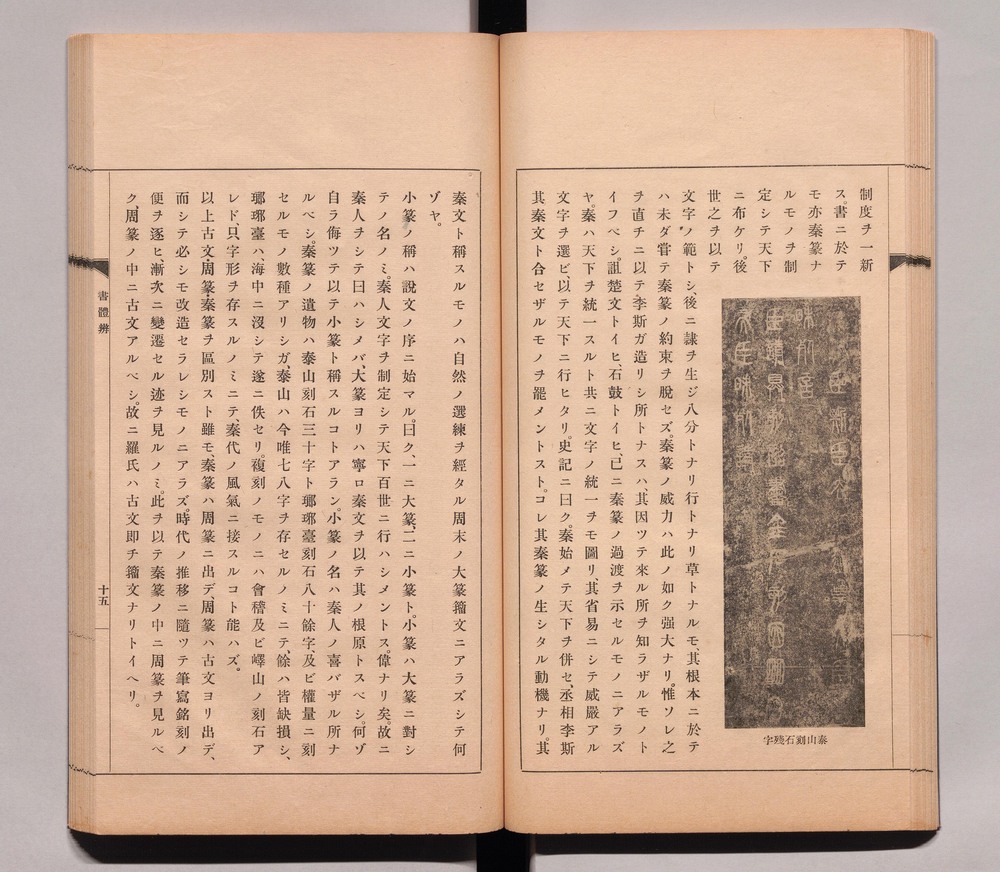 制度ヲ一新
ス。書ニ於テ
モ亦秦篆ナ
ルモノヲ制
定シテ天下
ニ布ケリ。後
世之ヲ以テ
文字ノ範トシ、後ニ隷ヲ生ジ八分トナリ行トナリ草トナルモ、其根本ニ於テ
ハ未ダ嘗テ秦篆ノ約束ヲ脱セズ。秦篆ノ威力ハ此ノ如ク强大ナリ。惟ソレ之
ヲ直チニ以テ李斯ガ造リシ所トナスハ、其因ツテ來ル所ヲ知ラザルモノト
イフベシ。詛楚文トイヒ、石鼓トイヒ、已ニ秦篆ノ過渡ヲ示セルモノニアラズ
ヤ。秦ハ天下ヲ統一スルト共ニ文字ノ統一ヲモ圖リ、其省易ニシテ威嚴アル
文字ヲ選ビ、以テ天下ニ行ヒタリ。史記ニ曰ク。秦始メテ天下ヲ併セ、丞相李斯
其秦文ト合セザルモノヲ罷メントスト。コレ其秦篆ノ生シタル動機ナリ。其
泰山刻石殘字
秦文ト稱スルモノハ自然ノ選練ヲ經タル周末ノ大篆籀文ニアラズシテ何
ゾヤ。
小篆ノ稱ハ說文ノ序ニ始マル。曰ク、一ニ大篆、二ニ小篆ト、小篆ハ大篆ニ對シ
テノ名ノミ。秦人文字ヲ制定シテ天下百世ニ行ハシメントス。偉ナリ矣。故ニ
秦人ヲシテ曰ハシメバ、大篆ヨリハ寧ロ秦文ヲ以テ其ノ根原トスベシ。何ゾ
自ラ侮ツテ以テ小篆ト稱スルコトアラン。小篆ノ名ハ秦人ノ喜バザル所ナ
ルベシ。秦篆ノ遺物ハ泰山刻石三十字ト瑯琊臺刻石八十餘字、及ビ權量ニ刻
セルモノ數種アリシガ、泰山ハ今唯七八字ヲ存セルノミニテ、餘ハ皆缺損シ、
瑯琊臺ハ、海中ニ沒シテ遂ニ佚セリ。複刻ノモノニハ會稽及ビ嶧山ノ刻石ア
レド、只字形ヲ存スルノミニテ秦代ノ風氣ニ接スルコト能ハズ。
以上古文周篆秦篆ヲ區別スト雖モ、秦篆ハ周篆ニ出デ、周篆ハ古文ヨリ出デ、
而シテ必シモ改造セラレシモノニアラズ。時代ノ推移ニ隨ツテ筆寫銘刻ノ
便ヲ逐ヒ、漸次ニ變遷セル迹ヲ見ルノミ。此ヲ以テ秦篆ノ中ニ周篆ヲ見ルベ
ク、周篆ノ中ニ古文アルベシ。故ニ羅氏ハ古文即チ籀文ナリトイヘリ。
書體辨
十五